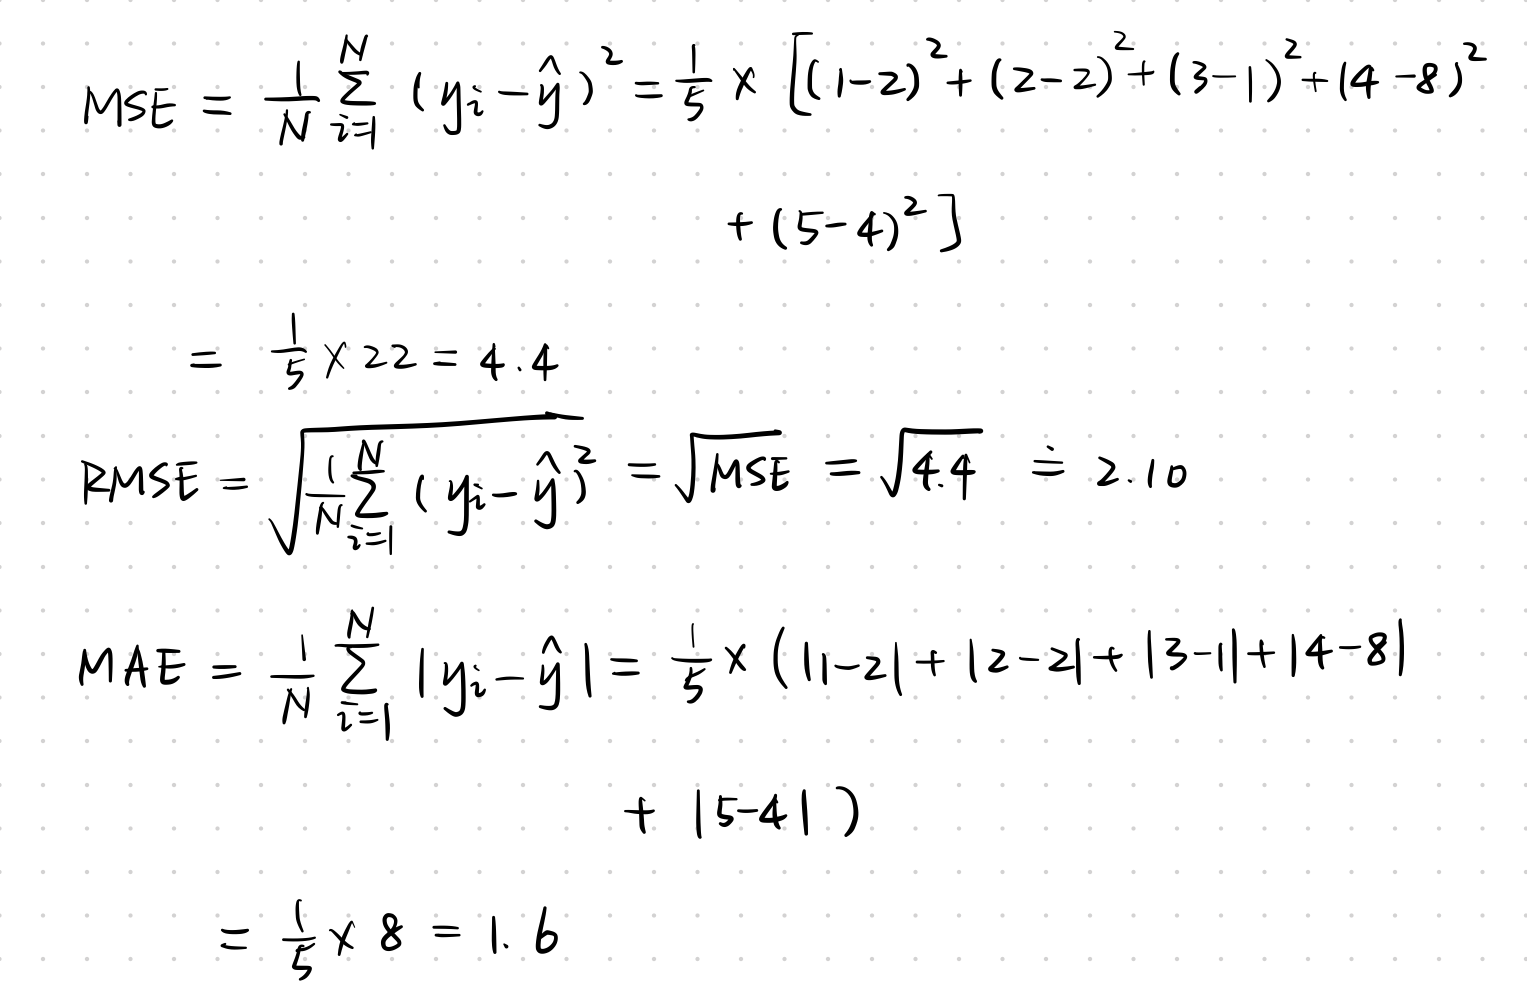 MSE = 1/N Σ_{i=1}^{N} (yi - ŷ)² = 1/5 × [(1-2)² + (2-2)² + (3-1)² + (4-8)²
+ (5-4)²]
= 1/5 × 22 = 4.4
RMSE = √(1/N Σ_{i=1}^{N} (yi - ŷ)²) = √MSE = √4.4 ≐ 2.10
MAE = 1/N Σ_{i=1}^{N} |yi - ŷ| = 1/5 × (|1-2| + |2-2| + |3-1| + |4-8|
+ |5-4|)
= 1/5 × 8 = 1.6